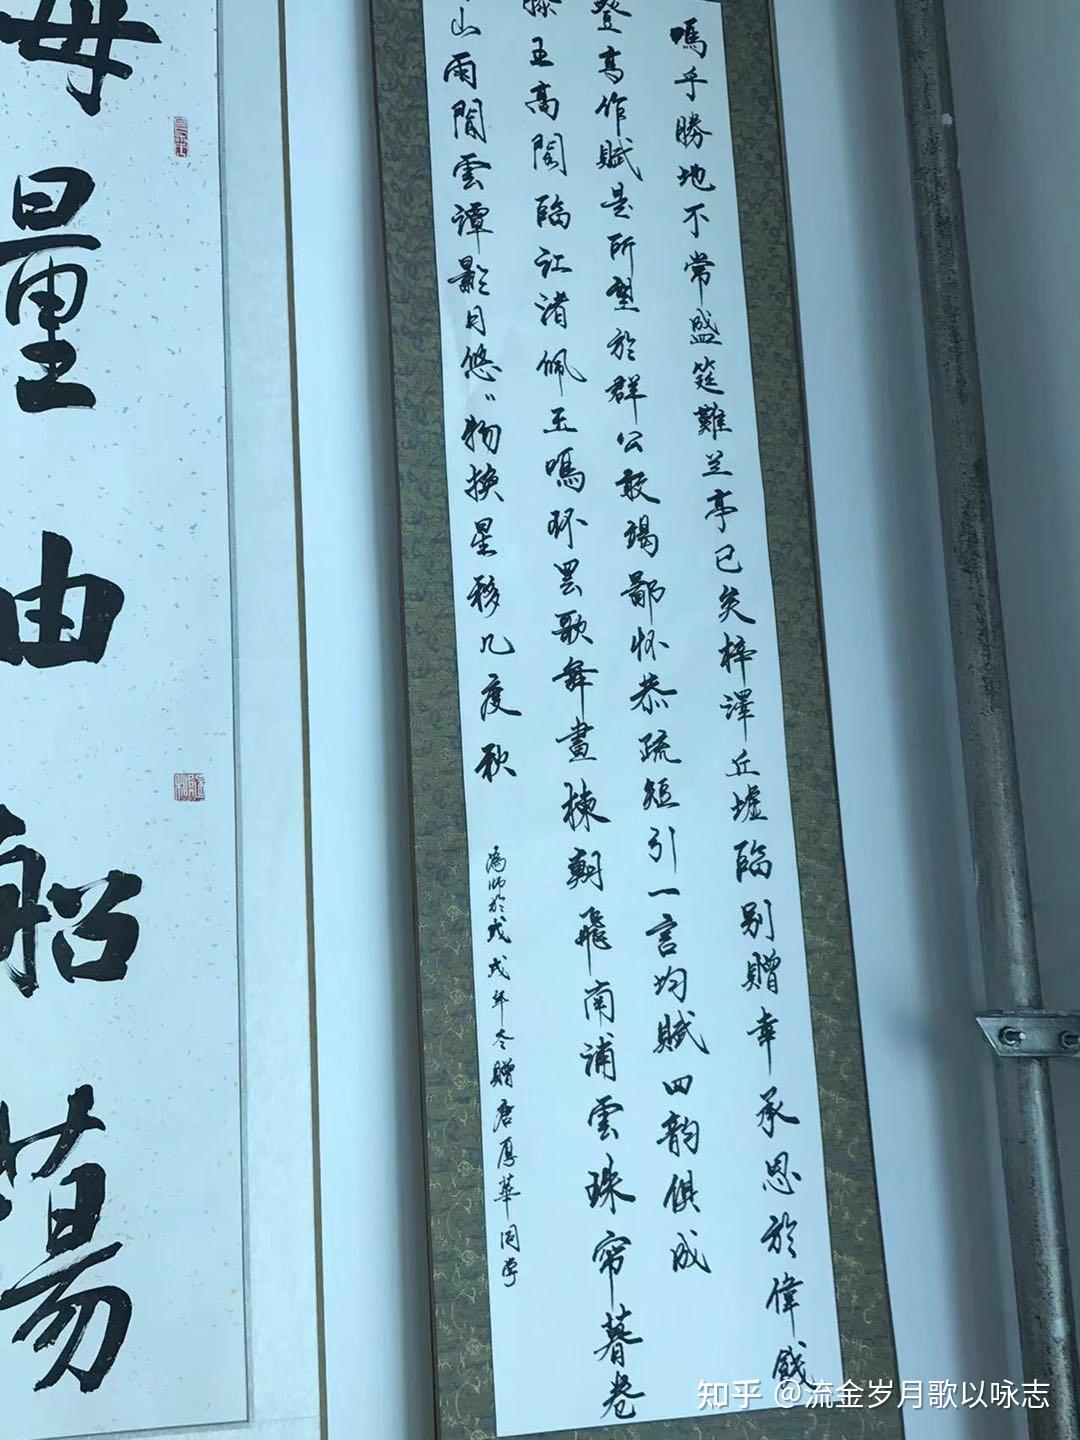 嗚乎勝地不常盛筵難兰亭已矣梓澤丘墟臨别贈幸承恩於偉餞
登高作賦是所望於群公敢竭鄙怀恭疏短引一言均賦四韵俱成
滕王高閣臨江渚佩玉鳴环罢歌舞畫棟朝飛南浦雲珠帘暮卷
山雨閒雲潭影日悠〃物换星移几度秋
馮师於戊戌年冬贈唐厚華同学
海量由船荡
知乎 @流金岁月歌以咏志